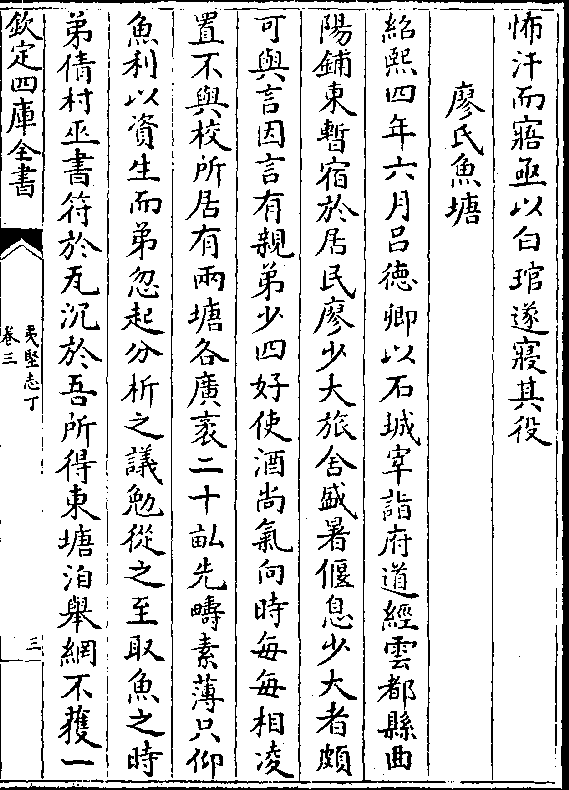 怖汗而寤亟以白琯遂寢其役
廖氏魚塘
紹熙四年六月吕德卿以石城宰詣府道經雲都縣曲
陽鋪東暫宿於居民廖少大旅舍盛暑偃息少大者頗
可與言因言有親弟少四好使酒尚氣向時每每相凌
置不與校所居有兩塘各廣袤二十畝先疇素薄只仰
魚利以資生而弟忽起分析之議勉從之至取魚之時
弟倩村巫書符於瓦沉於吾所得東塘洎舉網不獲一
欽定四庫全書
夷堅志丁
卷三
三